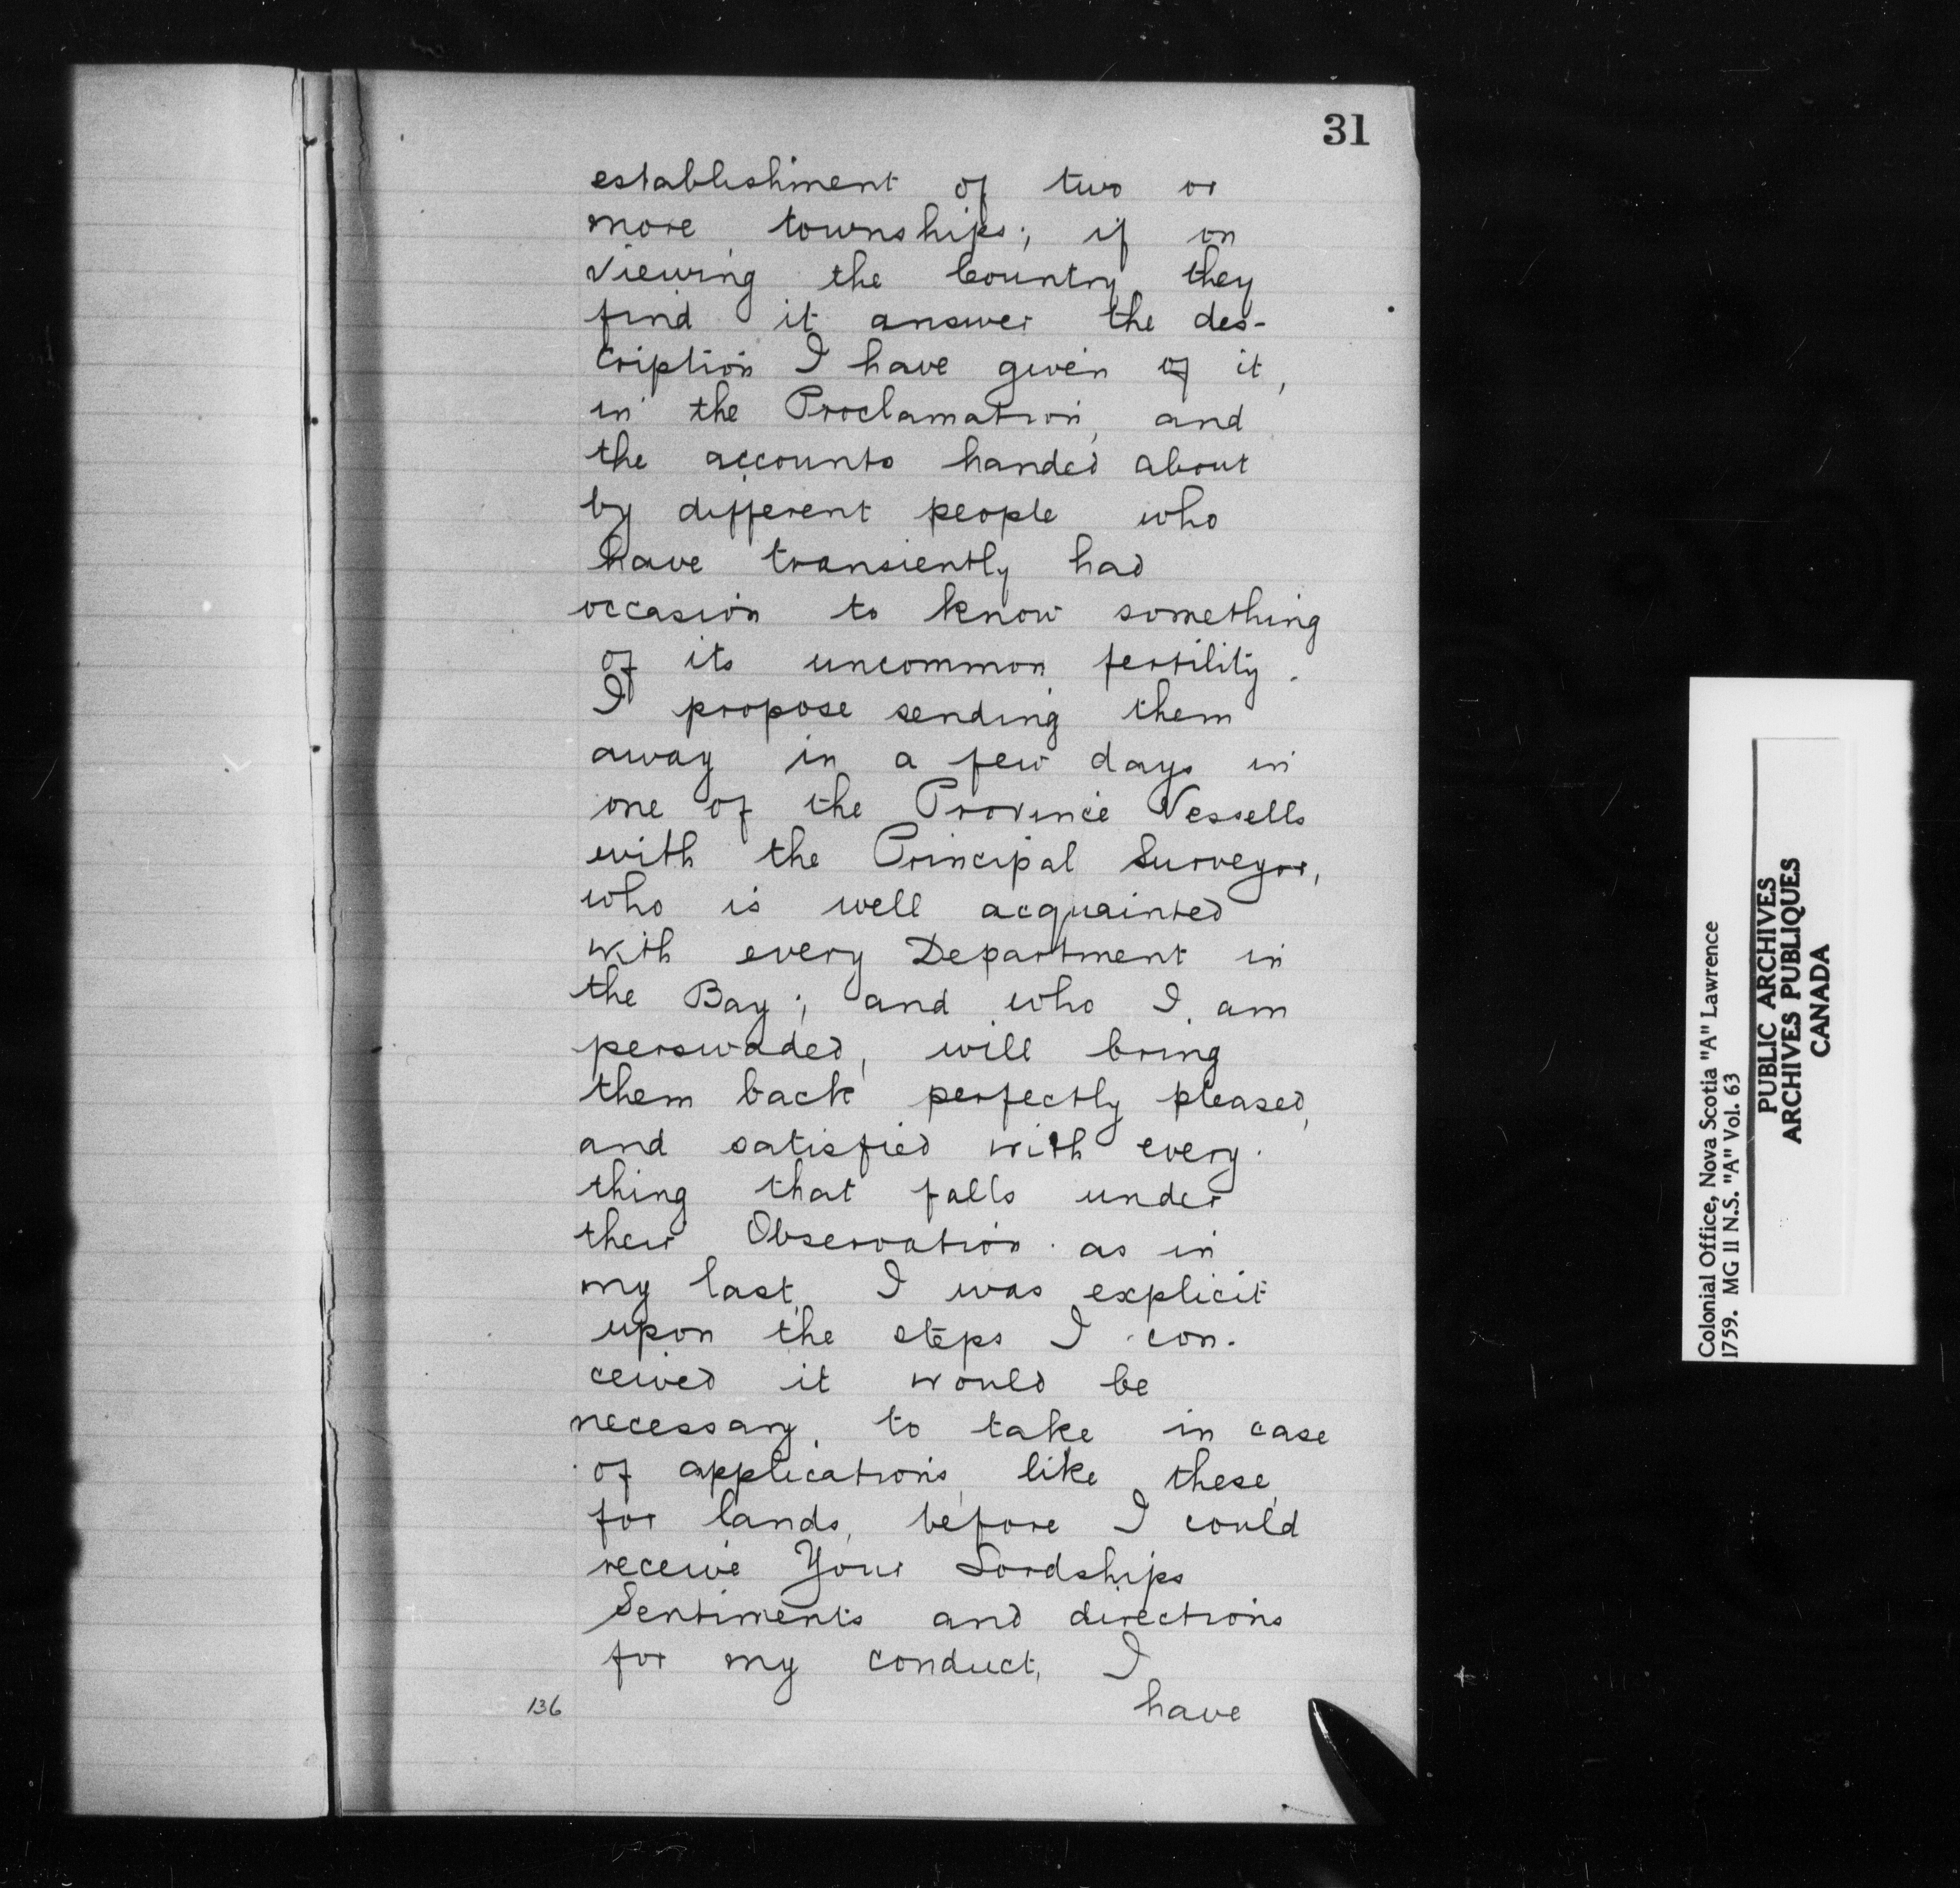 31
establishment of two or
more townships; if on
viewing the Country they
find it answer the des-
cription I have given of it,
in the Proclamation, and
the accounts handed about
by different people who
have transiently had
occasion to know something
of its uncommon fertility.
I propose sending them
away in a few days in
one of the Province Vessells
with the Principal Surveyor,
who is well acquainted
with every Department in
the Bay; and who I am
perswaded, will bring
them back perfectly pleased,
and satisfied with every-
thing that falls under
their Observation. as in
my last, I was explicit
upon the steps I con-
ceived it would be
necessary, to take in case
of applications, like these,
for lands, before I could
receive Your Lordships
Sentiments and directions
for my conduct, I
have
136
Colonial Office, Nova Scotia "A" Lawrence
1759. MG 11 N.S. "A" Vol. 63
PUBLIC ARCHIVES
ARCHIVES PUBLIQUES
CANADA